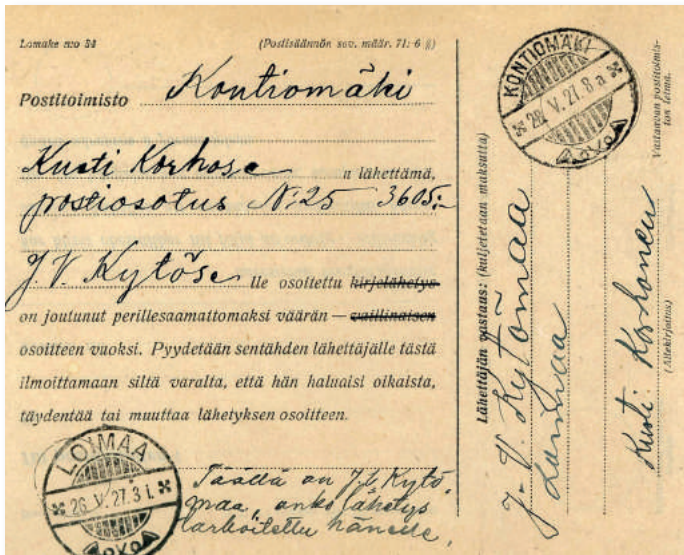 Lomake n:o 34 (Postisäännön sov. määr. 71: 6 §)
Postitoimisto Kontiomäki
Kusti Korhose n lähettämä,
postiosotus N:25 3605:-
J. V. Kytöse lle osoitettu kirjelähetys
on joutunut perillesaamattomaksi väärän — vaillinaisen
osoitteen vuoksi. Pyydetään sentähden lähettäjälle tästä
ilmoittamaan siltä varalta, että hän haluaisi oikaista,
täydentää tai muuttaa lähetyksen osoitteen.
Täällä on J.V. Kytö-
maa, onko lähetys
tarkoitettu hänelle,
LOIMAA
26 V. 27. 3 i.
Lähettäjän vastaus: (kuljetetaan maksutta)
J. V. Kytömaa
Loimaa
Kusti Korhonen
(Allekirjoitus)
Vastaavan postitoimis-
ton leima.
KONTIOMÄKI
28. V. 27. 8 a